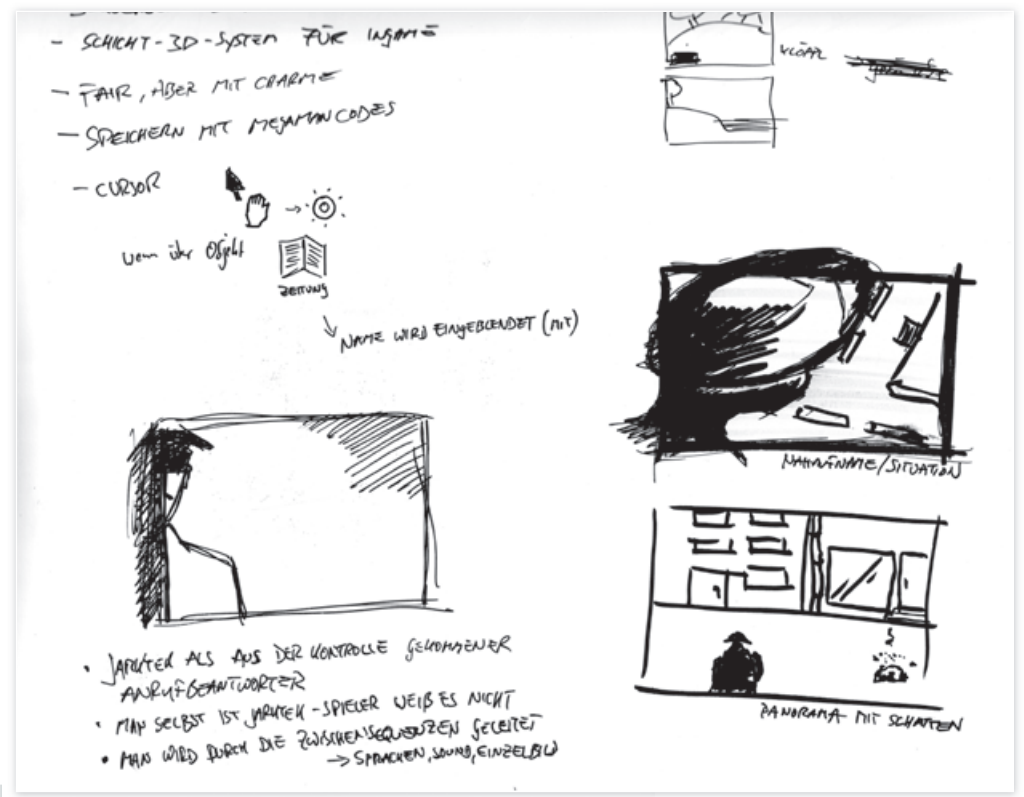 - SCHICHT-3D-SYSTEM FÜR INGAME
- FAIR, ABER MIT CHARME
- SPEICHERN MIT MEGAMANCODES
- CURSOR
wenn über Objekt
ZEITUNG
NAME WIRD EINGEBLENDET (MIT)
NAHAUFNAHME/SITUATION
• ALS AUS DER KONTROLLE GEKOMMENER
ANRUFBEANTWORTER
• MAN SELBST IST - SPIELER WEIß ES NICHT
• MAN WIRD DURCH DIE ZWISCHENSEQUENZEN GELEITET
→ SPRACHEN, SOUND, EINZELBILD
PANORAMA MIT SCHATTEN